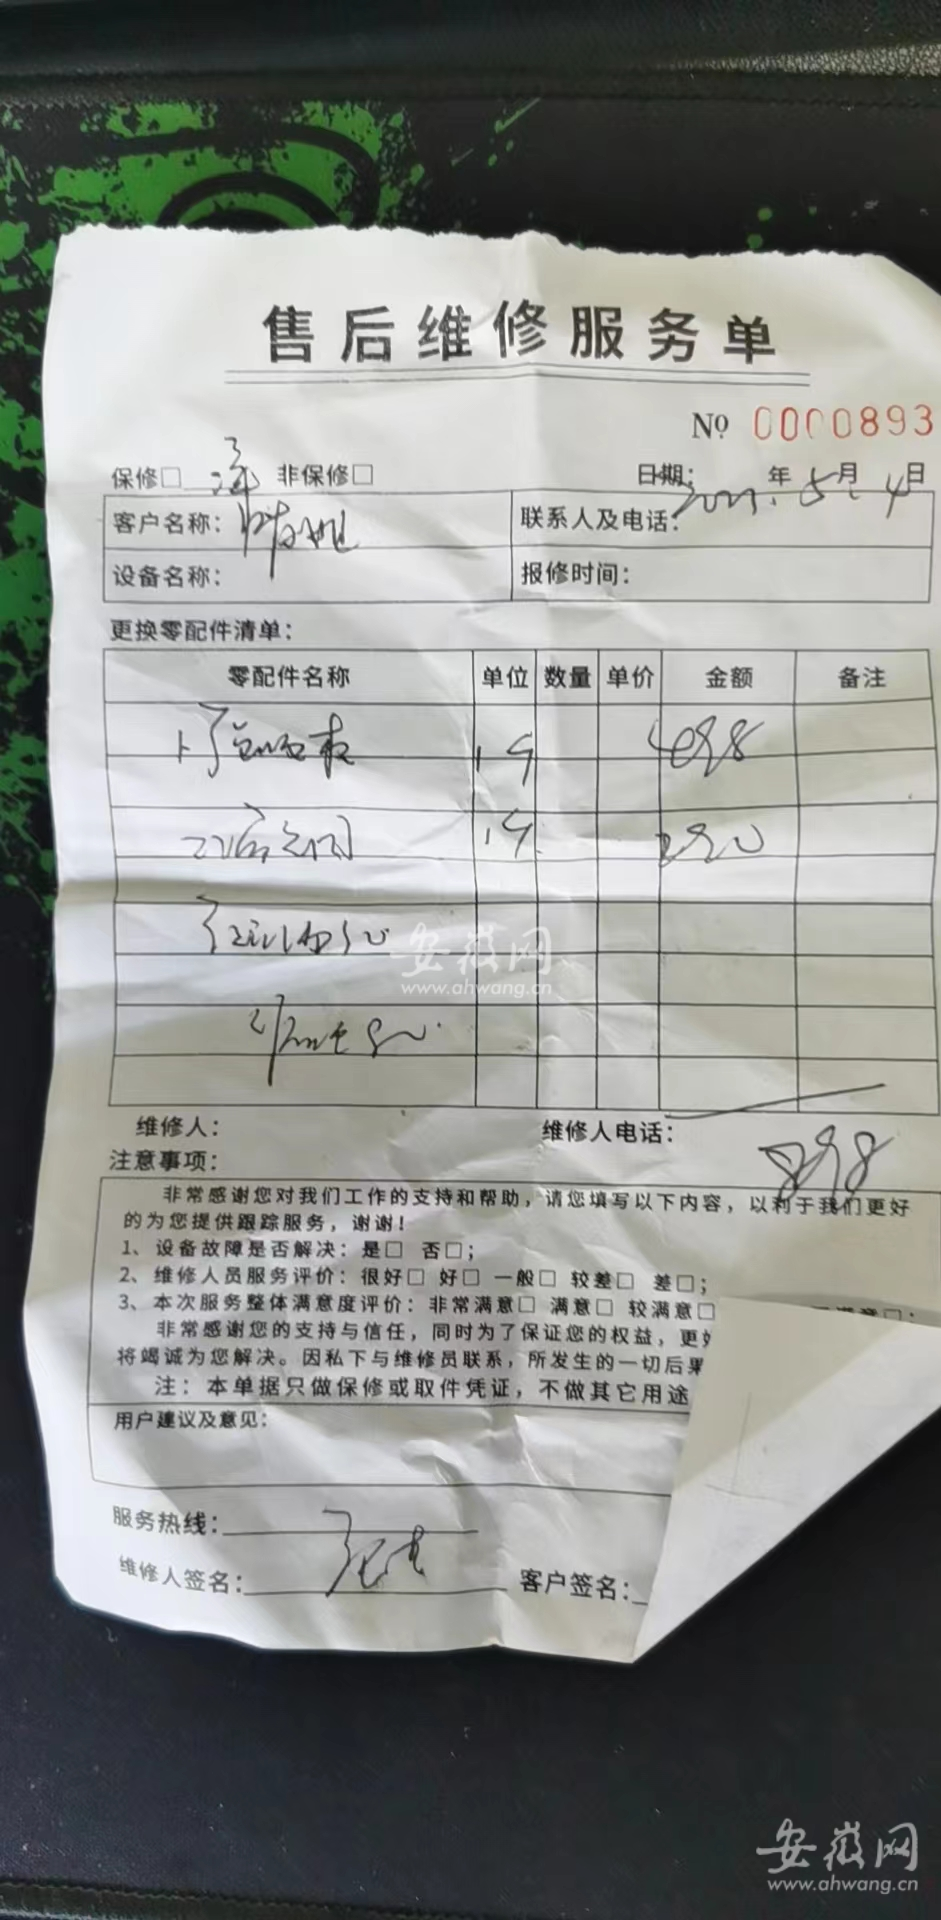 售后维修服务单
№ 0000893
保修□ 三年 非保修□ 日期： 年5月4日
客户名称： 联系人及电话：
设备名称： 报修时间：
更换零配件清单：
零配件名称 单位 数量 单价 金额 备注
1个 498
1个
维修人： 维修人电话：
898
注意事项：
非常感谢您对我们工作的支持和帮助，请您填写以下内容，以利于我们更好
的为您提供跟踪服务，谢谢！
1、设备故障是否解决：是□ 否□；
2、维修人员服务评价：很好□ 好□ 一般□ 较差□ 差□；
3、本次服务整体满意度评价：非常满意□ 满意□ 较满意□ 满意□；
非常感谢您的支持与信任，同时为了保证您的权益，更
将竭诚为您解决。因私下与维修员联系，所发生的一切后果
注：本单据只做保修或取件凭证，不做其它用途
用户建议及意见：
服务热线：
维修人签名： 客户签名：
安徽网
www.ahwang.cn
安徽网
www.ahwang.cn